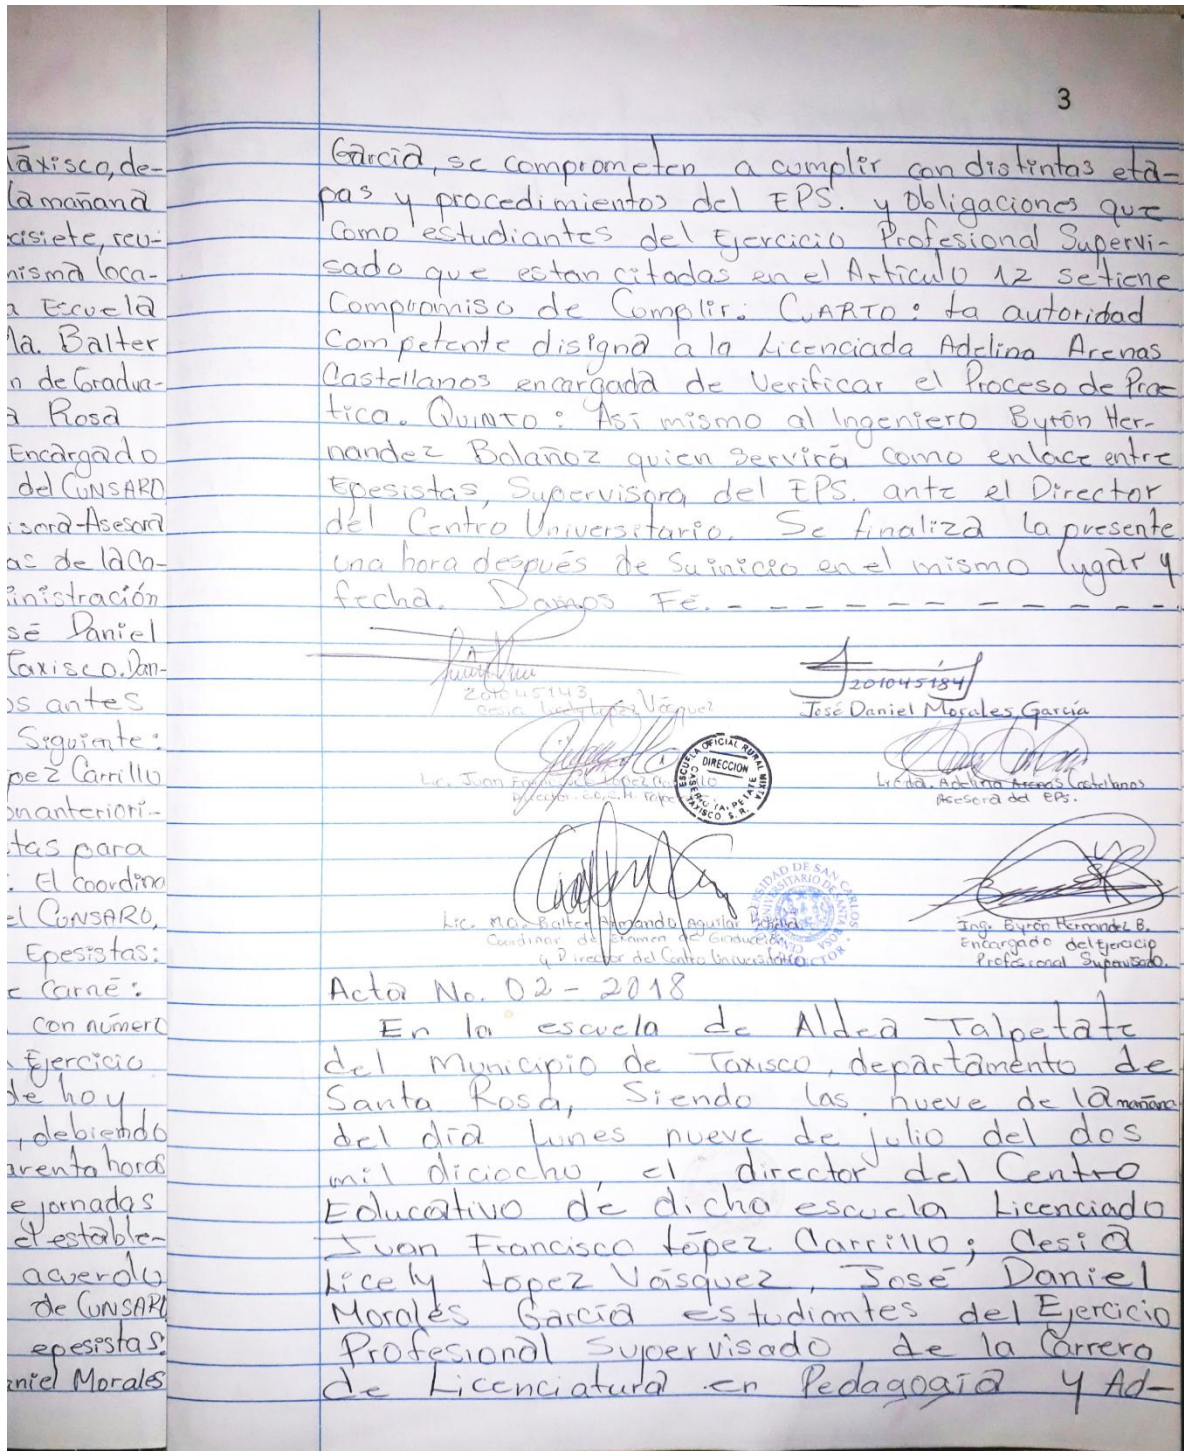 Taxisco, de-
la mañana
cisiete, reu-
misma loca-
a Escuela
la. Balter
n de Gradua-
a Rosa
Encargado
del CUNSARO
isora-Asesora
as de la Ca-
inistración
sé Daniel
Taxisco. Dan-
os antes
Siguiente:
pez Carrillo
on anteriori-
tas para
. El coordina
el CUNSARO,
Epesistas:
e Carné:
con número
Ejercicio
de hoy
, debiendo
arenta horas
e jornadas
el estable-
acuerdo
de CUNSARO
epesistas.
niel Morales
3
García, se comprometen a cumplir con distintas eta-
pas y procedimientos del EPS. y Obligaciones que
Como estudiantes del Ejercicio Profesional Supervi-
sado que estan citadas en el Articulo 12 se tiene
Compromiso de Cumplir. CUARTO: La autoridad
Competente disigna a la Licenciada Adelina Arenas
Castellanos encargada de Verificar el Proceso de Prac
tica. QUINTO: Así mismo al Ingeniero Byron Her-
nandez Bolañoz quien Servirá como enlace entre
Epesistas, Supervisora del EPS. ante el Director
del Centro Universitario. Se finaliza la presente
una hora después de Su inicio en el mismo lugar y
fecha. Damos Fé. - - - - - - - - - - - -
201045143
Cesia Licely Lopez Vásquez
201045184
José Daniel Morales García
Lic. Juan Francisco López Carrillo
Director
ESCUELA OFICIAL RURAL MIXTA
DIRECCION
CASERIO TALPETATE
TAXISCO S. R.
Licda. Adelina Arenas Castellanos
Asesora del EPS.
Lic. Ma. Balter Armando Aguilar
Coordinar de Examen de Graduación
y Director del Centro Universitario
Ing. Byron Hernandez B.
Encargado del Ejercicio
Profesional Supervisado.
Acta No. 02 - 2018
En la escuela de Aldea Talpetate
del Municipio de Taxisco, departamento de
Santa Rosa, Siendo las nueve de la mañana
del día lunes nueve de julio del dos
mil diciocho, el director del Centro
Educativo de dicha escuela Licenciado
Juan Francisco López Carrillo; Cesia
Licely Lopez Vásquez, José Daniel
Morales García estudiantes del Ejercicio
Profesional Supervisado de la Carrera
de Licenciatura en Pedagogía y Ad-